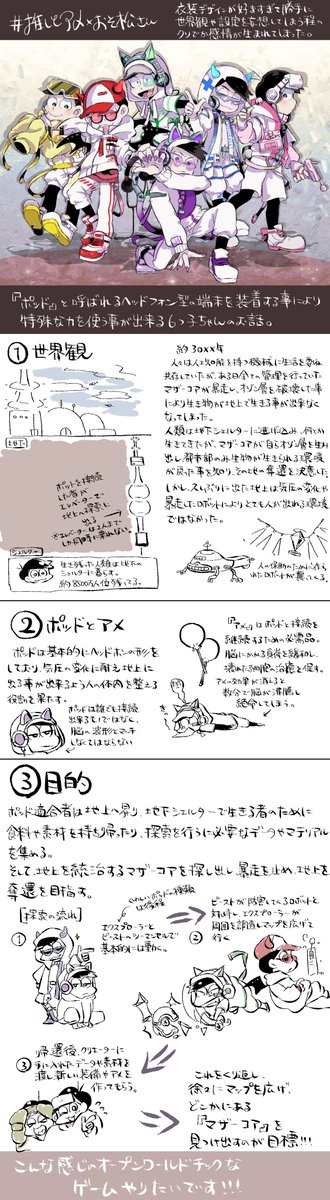 #推しとアメ×おそ松さん
衣装デザインが好きすぎて勝手に
世界観や設定を妄想してしまう程の
クソでか感情が生まれてしまった。
『ポッド』と呼ばれるヘッドフォン型の端末を装着する事により
特殊な力を使う事が出来る6つ子ちゃんのお話。
① 世界観
約30XX年
人々は人工知能を持つ機械に生活を委ね
共存していたが、ある日全ての管理を行っていた
マザーコアが暴走し、オゾン層を破壊した事
により生き物が地上で生きる事が出来なく
なってしまった。
人類は地下シェルターに逃げ込み、何とか
生きてきたが、マザーコアが自らオゾン層を生み
出し、都市部のみ生物が生きられる環境
が戻った事を知り、そのとき奪還を決意した
しかし久しぶりに出た地上は気圧の変化や
暴走したロボットによりとても人が出れる環境
ではなかった。
地下
ポッドを接続
した者が
エレベーターで
地上の探索に
出る
※エレベーターは2人まで
しか同時に乗れない
シェルター
生き残った人類は地下の
シェルターに暮らす。
約8500万人位残ってる。
人の保護のために作ら
れたロボットが襲ってくる
② ポッドとアメ
ポッドは基本的にヘッドホンの形を
しており、気圧の変化に耐え地上に
出る事が出来るよう人の体内を整える
役割を果たす。
ポッドは誰でも接続
出来るものではなく、
脳の波形とマッチ
しなくてはならない
『アメ』はポッドと接続を
継続するための必需品。
脳にかかる負荷を緩和し、
壊れた細胞の治癒を促す。
アメの効果が消えると
数分で脳が沸騰し
絶命してしまう。
③ 目的
ポッド適合者は地上へ昇り、地下シェルターで生きる者のために
食料や素材を持ち帰ったり、探索を行うに必要なデータやマテリアル
を集める。
そして地上を統治するマザーコアを探し出し、暴走を止め、地上を
奪還を目指す。
[探索の流れ]
くわしいポッドの種類
は後程
①
エクスプローラーと
ビーストのツーマンセルで
基本的には動く。
②
ビーストが妨害してくるロボットと
対峙し、エクスプローラーが
周囲を調査しマップを広げて
行く
③
帰還後、クリエーターに
手に入れたデータや素材を
渡し、新しい装備やアメを
作ってもらう。
これをくり返し
徐々にマップを広げ、
どこかにある
『マザーコア』を
見つけ出すのが目標!!!
こんな感じのオープンワールドチックな
ゲームやりたいです!!!